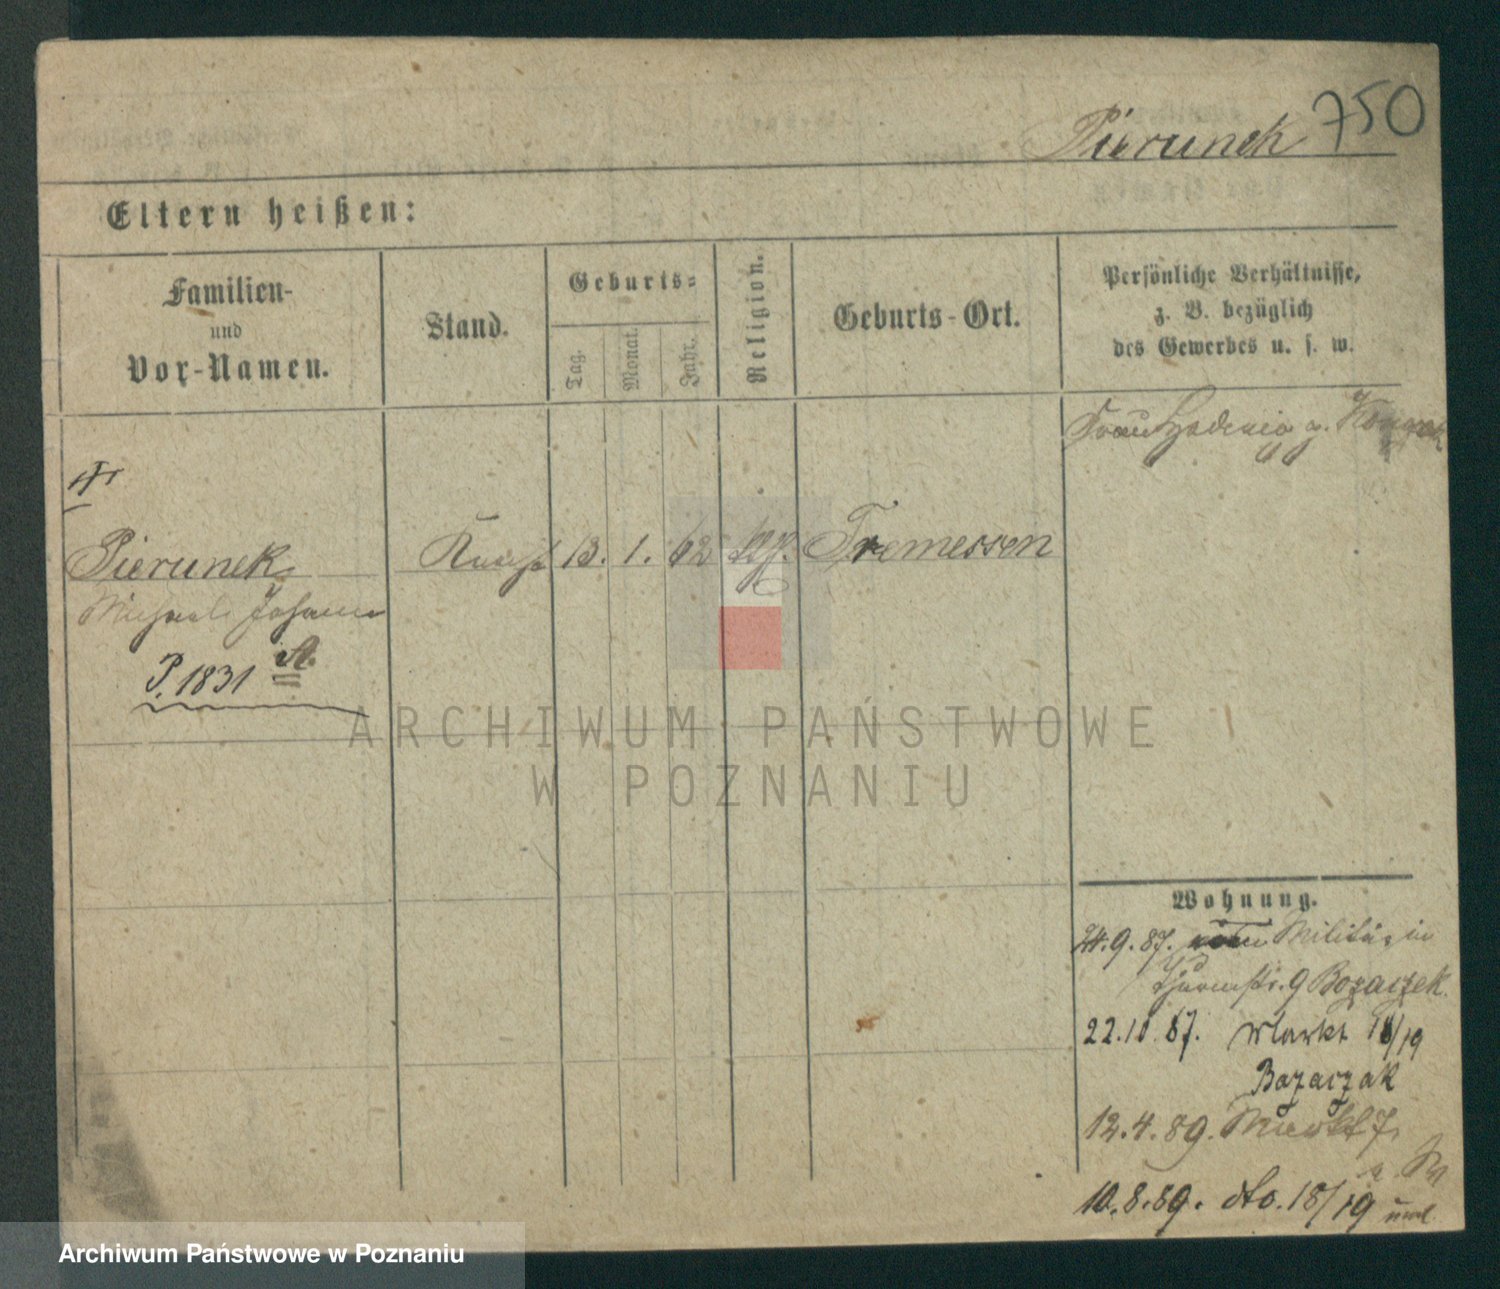 Pierunek 750
Eltern heißen:
Familien-
und
Vor-Namen.
Stand.
Geburts-
Tag.
Monat.
Jahr.
Religion.
Geburts-Ort.
Persönliche Verhältnisse,
z. B. bezüglich
des Gewerbes u. s. w.
Frau Hedwig g.
Pierunek Knecht 13. 1. 62 Tremessen
Michael Johann
P. 1831 A.
ARCHIWUM PAŃSTWOWE
W POZNANIU
Wohnung.
24.9.87. vom Militär in
9 Bozaczek.
22.10.87. Markt 18/19
Bazarzak
12.4.89. Markt 7.
10.8.89. dto. 18/19
Archiwum Państwowe w Poznaniu